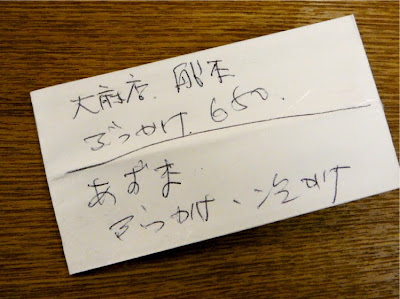 大府店. 熊本
ぶっかけ. 650.
あずま
ぶっかけ、冷かけ